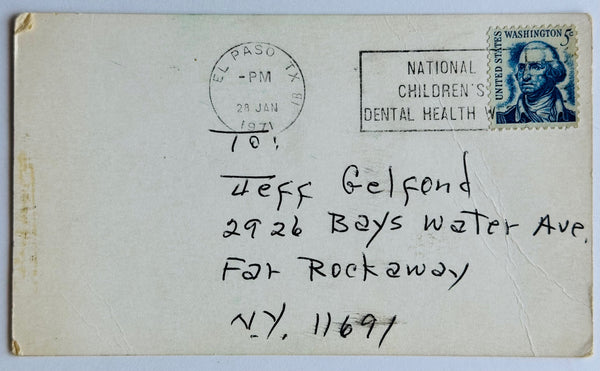 EL PASO TX
-PM
28 JAN
1971
NATIONAL
CHILDREN'S
DENTAL HEALTH W
UNITED STATES
WASHINGTON 5¢
TO:
Jeff Gelfond
2926 Bays Water Ave.
Far Rockaway
N.Y. 11691